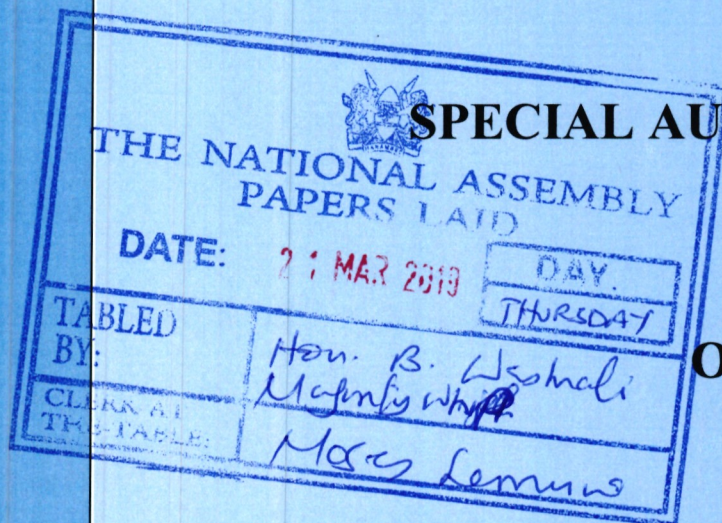 SPECIAL AU
THE NATIONAL ASSEMBLY
PAPERS LAID
DATE: 21 MAR 2019
DAY.
THURSDAY
TABLED
BY:
Hon. B. Washiali
Majority Whip
O
CLERK AT
THE-TABLE:
Moses Lemuna